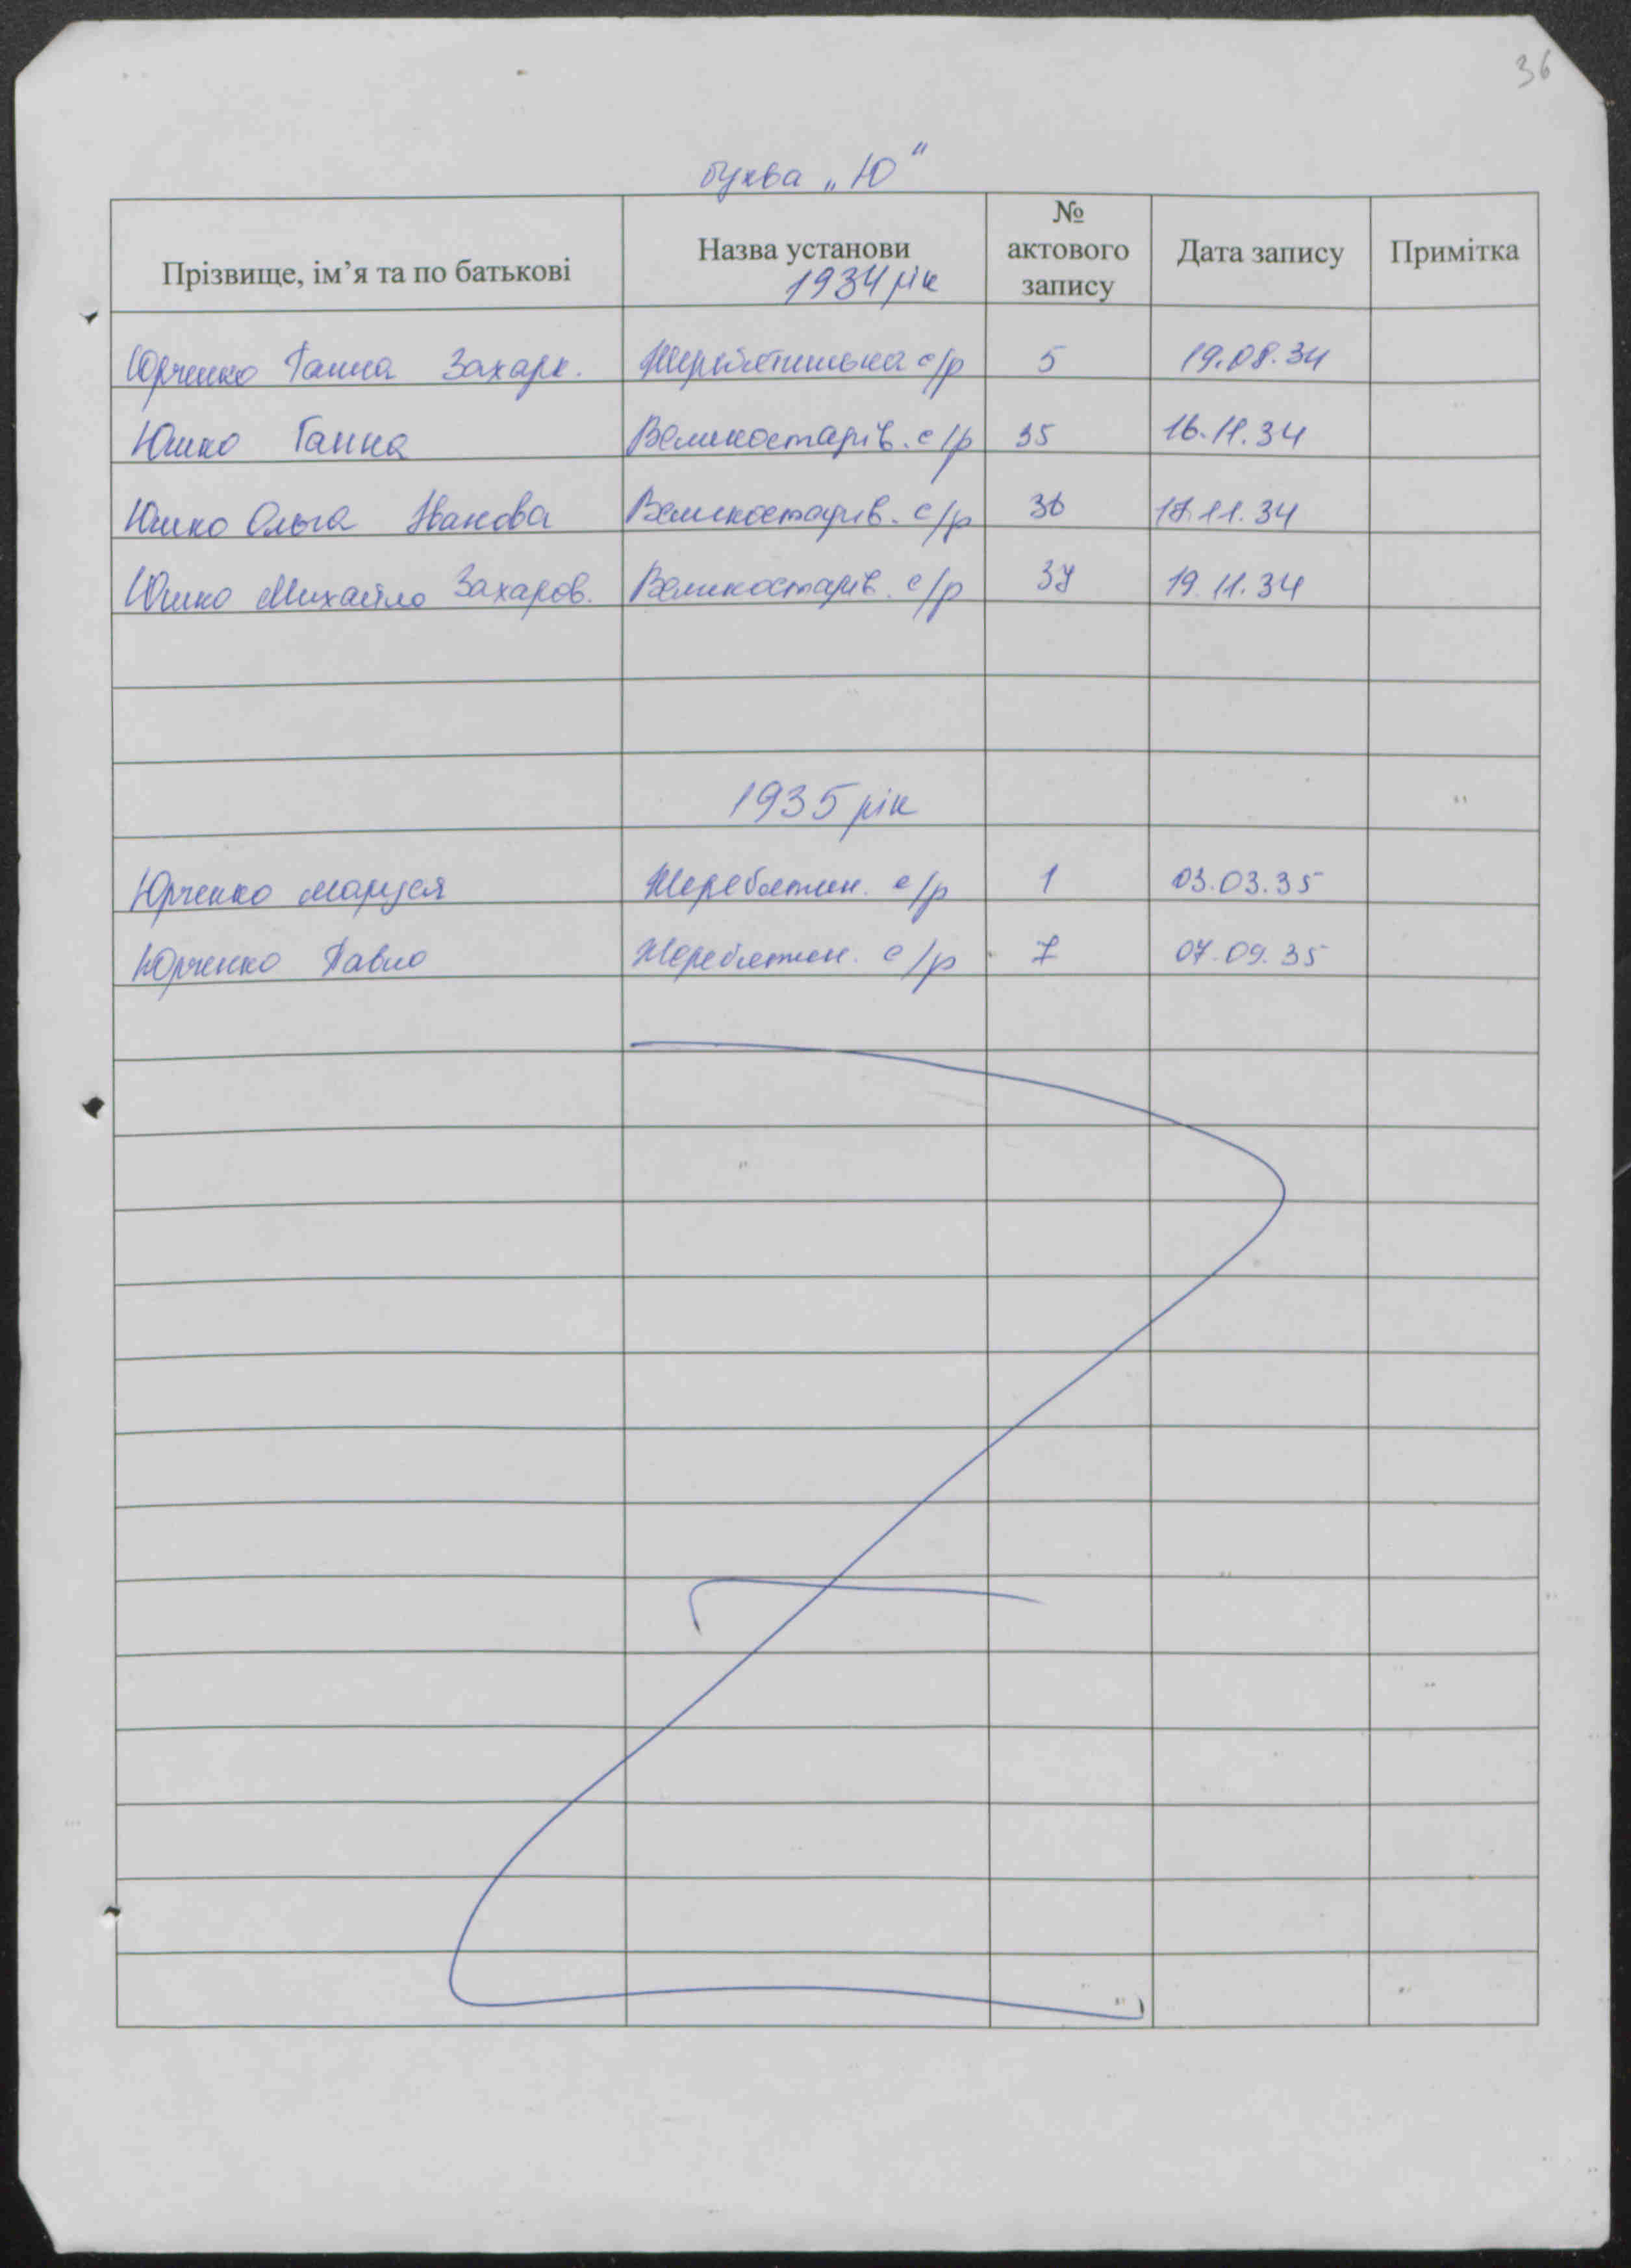 36
буква „Ю"
Прізвище, ім’я та по батькові Назва установи 1934 рік № актового запису Дата запису Примітка
Юрченко Ганна Захарк. с/р 5 19.08.34
Юшко Ганна Великостарів. с/р 35 16.11.34
Юшко Ольга Іванова Великостарів. с/р 36 11.34
Юшко Михайло Захаров. Великостарів. с/р 37 19.11.34
1935 рік
Юрченко Маруся Жеребятин. с/р 1 03.03.35
Юрченко Павло Жеребятин. с/р 7 07.09.35